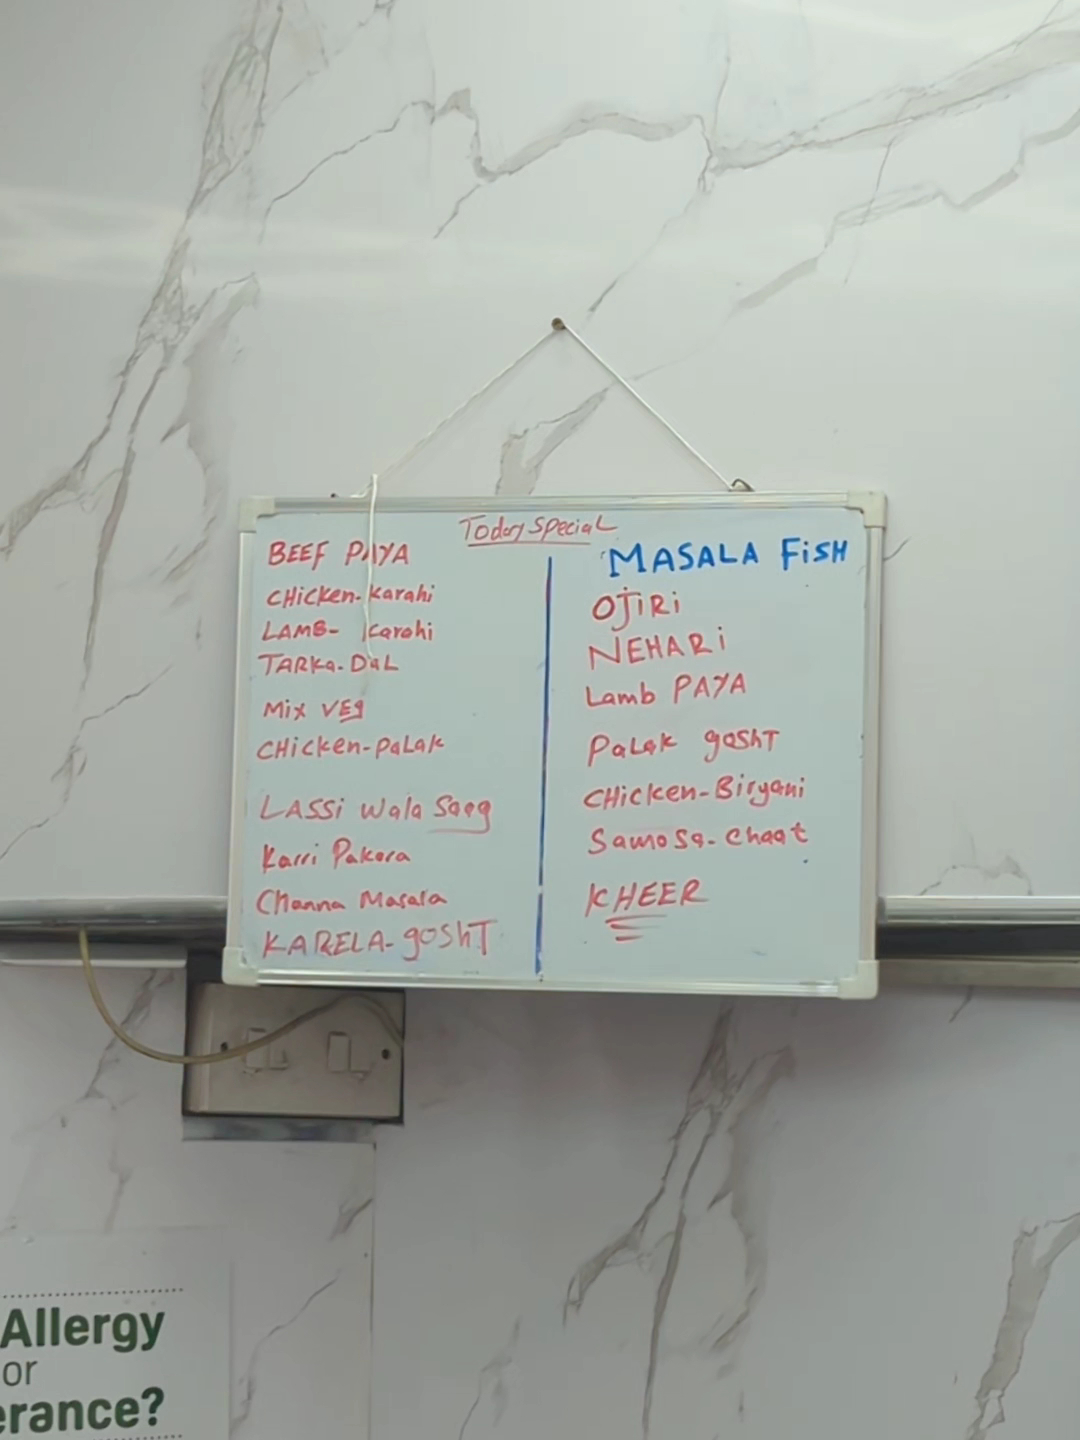 Today Special
BEEF PAYA
CHicken-karahi
LAMB- Karahi
TARKa-DaL
Mix VEg
CHicken-PaLak
LASSi Wala Saag
Karri Pakora
Channa Masala
KARELA-goShT
MASALA FiSH
OJiRi
NEHARi
Lamb PAYA
PaLak goShT
CHicken-Biryani
Samosa-Chaat
KHEER
Allergy
or
erance?